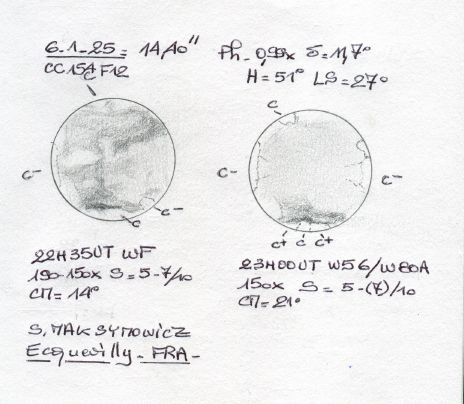 6-1-25 = 14,40"
Ph_0,98x δ=11,7°
CC15A F12
H=51° LS=27°
C
C
C-
C-
C-
C-
C
C+ C C+
22H35UT WF
190-150x S=5-7/10
CM=14°
23H00UT W56/W80A
150x S=5-(7)/10
CM=21°
S.MAKSYMOWICZ
Ecquevilly_FRA-